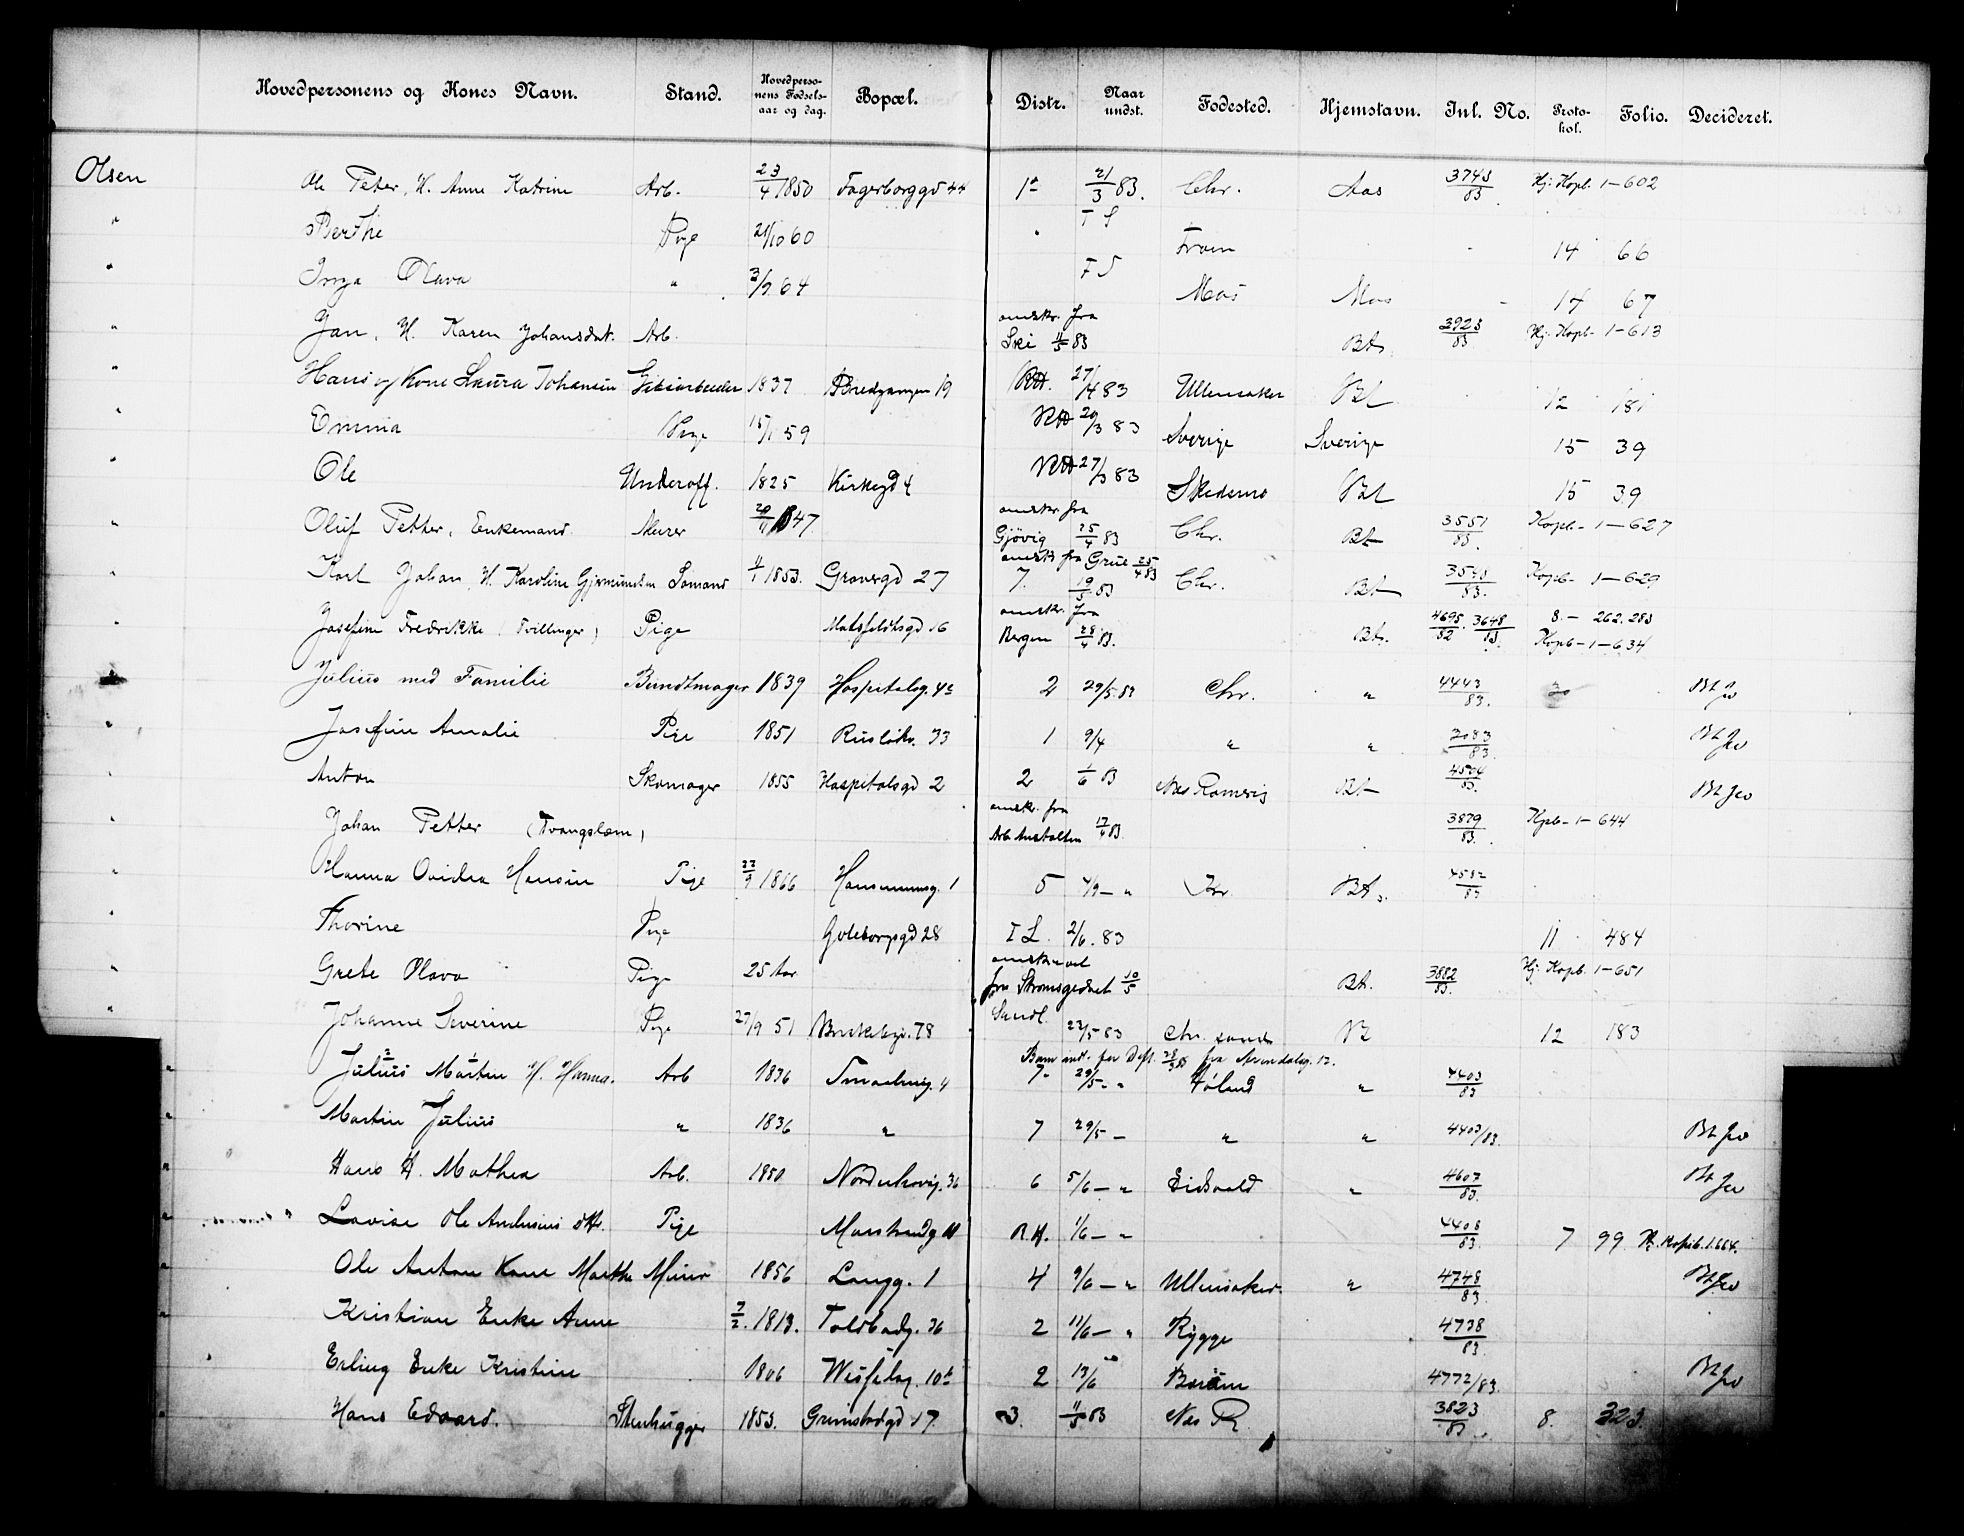 Hovedpersonens og Kones Navn. Stand. Hovedpersonens Fødselsaar og dag. Bopæl. Distr. Naar undst. Fødested. Hjemstavn. Inl. No. Protokol. Folio. Decideret.
Olsen Ole Peter, H. Anne Katrine Arb. 23/4 1850 Fagerborggd 44 1a 21/3 83. Chr. Aas 3743/83 Hj. Kopb. 1-602
" Berthe Pige 21/10 60 " T S Froen 14 66
" Inga Olava " 3/9 64 T S Mos Mos 14 67
" Jan, H. Karen Johansdat. Arb. omskr. fra Ski 11/5 83 Bt. 3923/83 Hj. Kopb. 1-613
" Hans og Kone Laura Johansen 1837 Bredgangen 19 RH. 27/4 83 Ullensaker Bt 12 181
" Emma Pige 15/1 59 RH 20/3 83 Sverige Sverige 15 39
" Ole Underoff. 1825 Kirkegd 4 RH 27/3 83 Skedsmo Bt 15 39
" Oluf Petter, Enkemand Murer 20/11 1847 omskr. fra Gjövig 25/4 83 Chr. Bt 3551/83. Kopb- 1-627
" Karl Johan, H. Karoline Gjermundsen Sømand 11/1 1853. Gravergd 27 omskr. fra Grue 25/4 83 7. 19/5 83 Chr. Bt 3548/83. Kopb- 1-629
" Josefine Fredrikke (Tvillinger) Pige 16 omskr. fra Bergen 28/4 83. Bt. 4695/82. 3648/83. 8.- 262. 283 Kopb-1-634
" Julius med Familie Bundtmager 1839 Hospitalsg. 4c 2 29/5 83 Chr. " 4443/83. Bt Jev
" Josefine Amalie Pige 1851 Rusløkv. 33 1 9/4 " " 2083/83 Bt Jev
" Anton Skomager 1855 Hospitalsgd 2 2 1/6 83 Nes Romerig Bt 4504/83. Bt Jev
" Johan Petter (Tvangslem) omskr. fra Arb. Anstalten 17/4 83. 3879/83. Kpb-1-644
" Hanna Ovidia Hansen Pige 22/9 1866 Hansmumsg. 1 5 4/9 - " Bt. 4582/83
" Thorine Pige Goteborggd 28 I L. 2/6. 83 11 484
" Grete Olava Pige 25 Aar omskrevet fra Strømsgodset 10/5 Bt. 3882/83. Hj. Kopb. 1-651
" Johanne Severine Pige 27/9 51 78 Sandl. 22/5 83 Chr. sand Bt 12 183
" Julius Martin H. Hanna. Arb 1836 Smaalensg. 4 Barn und. for Dift. fra Arendalsg. 12. 7 29/5 - " Høland " 4403/83
" Martin Julius " 1836 " 7 29/5 - " " 4403/83. Bt Jev
" Hans H. Mathea Arb. 1850 Norderhovsg. 36 6 5/6 - " Eidsvold " 4607/83. Bt Jev
" Lovise Ole Andersens dtr. Pige Marstrandg 11 R.H. 1/6 - " 4408/83. 7 99. Hj. Kopib. 1.664.
" Ole Anton Kone Marthe Murer 1856 Langg. 1 4 9/6 - " Ullensaker. " 4748/83 Bt Jev
" Kristian Enke Anne 7/2. 1813. Toldbodg. 36 2 11/6 - " Rygge 4738/83.
" Erling Enke Kristine 1806 Wesselsg. 10b 2 13/6 " Bærum 4772/83. Bt Jev
" Hans Edvard. Stenhugger 1853. Grimstadgd 17. 3. 11/5 83 Nes R. 3823/83 8. 323.